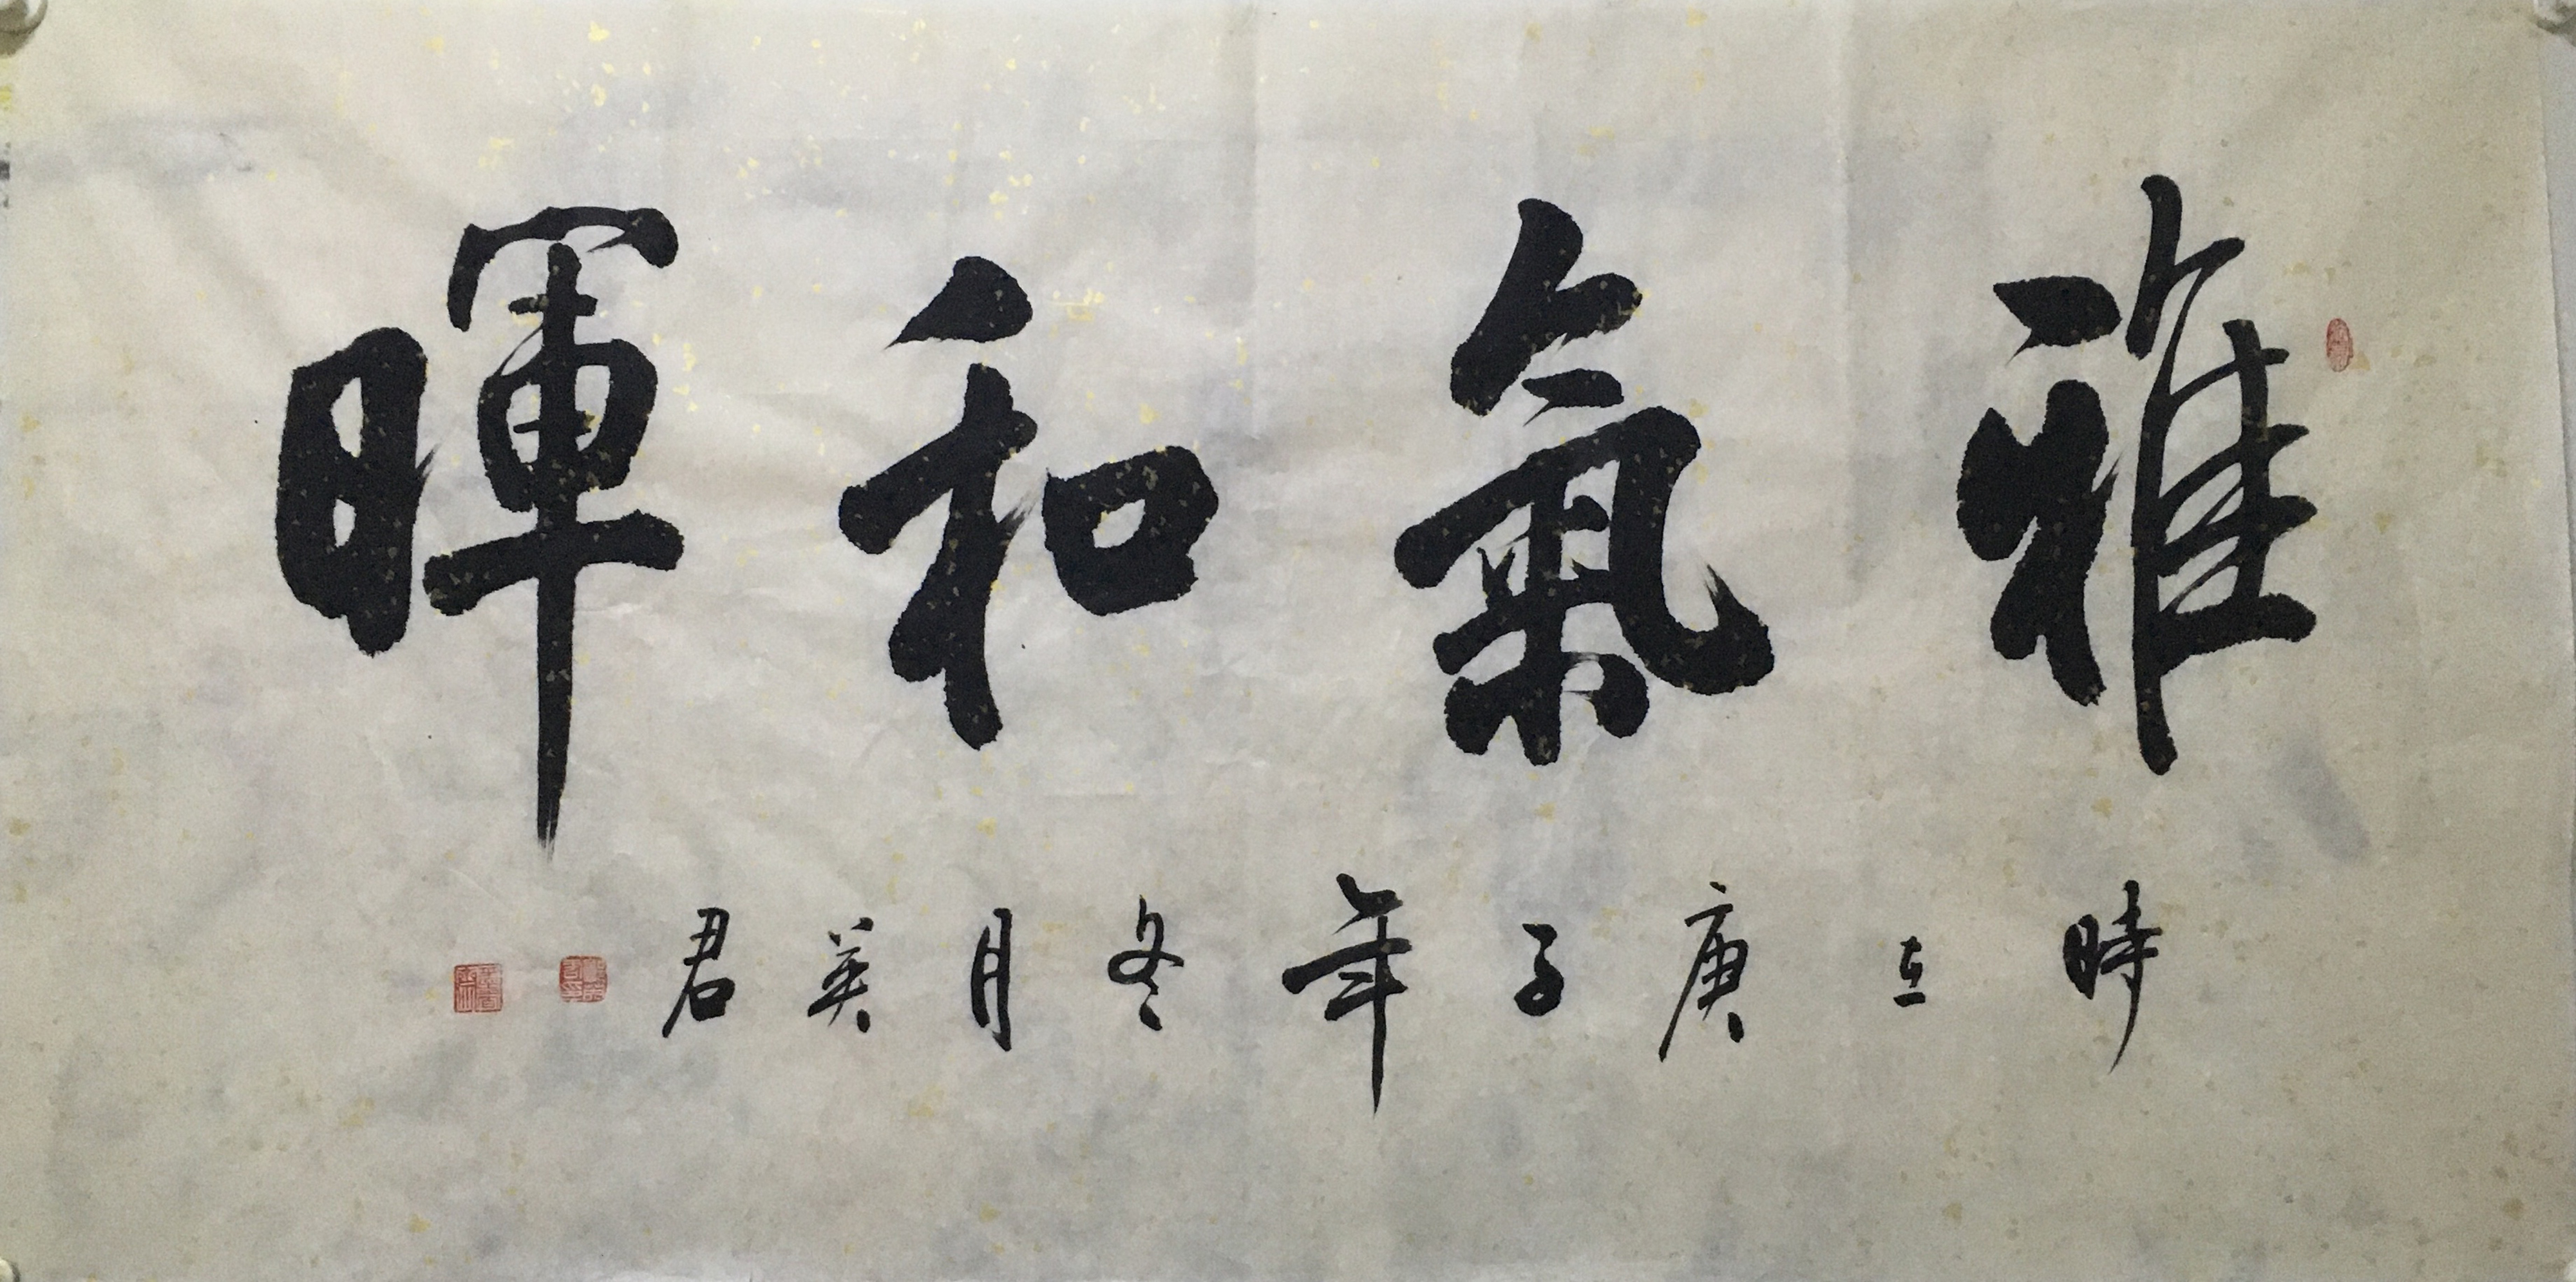 雅氣和暉
時在庚子年冬月英君